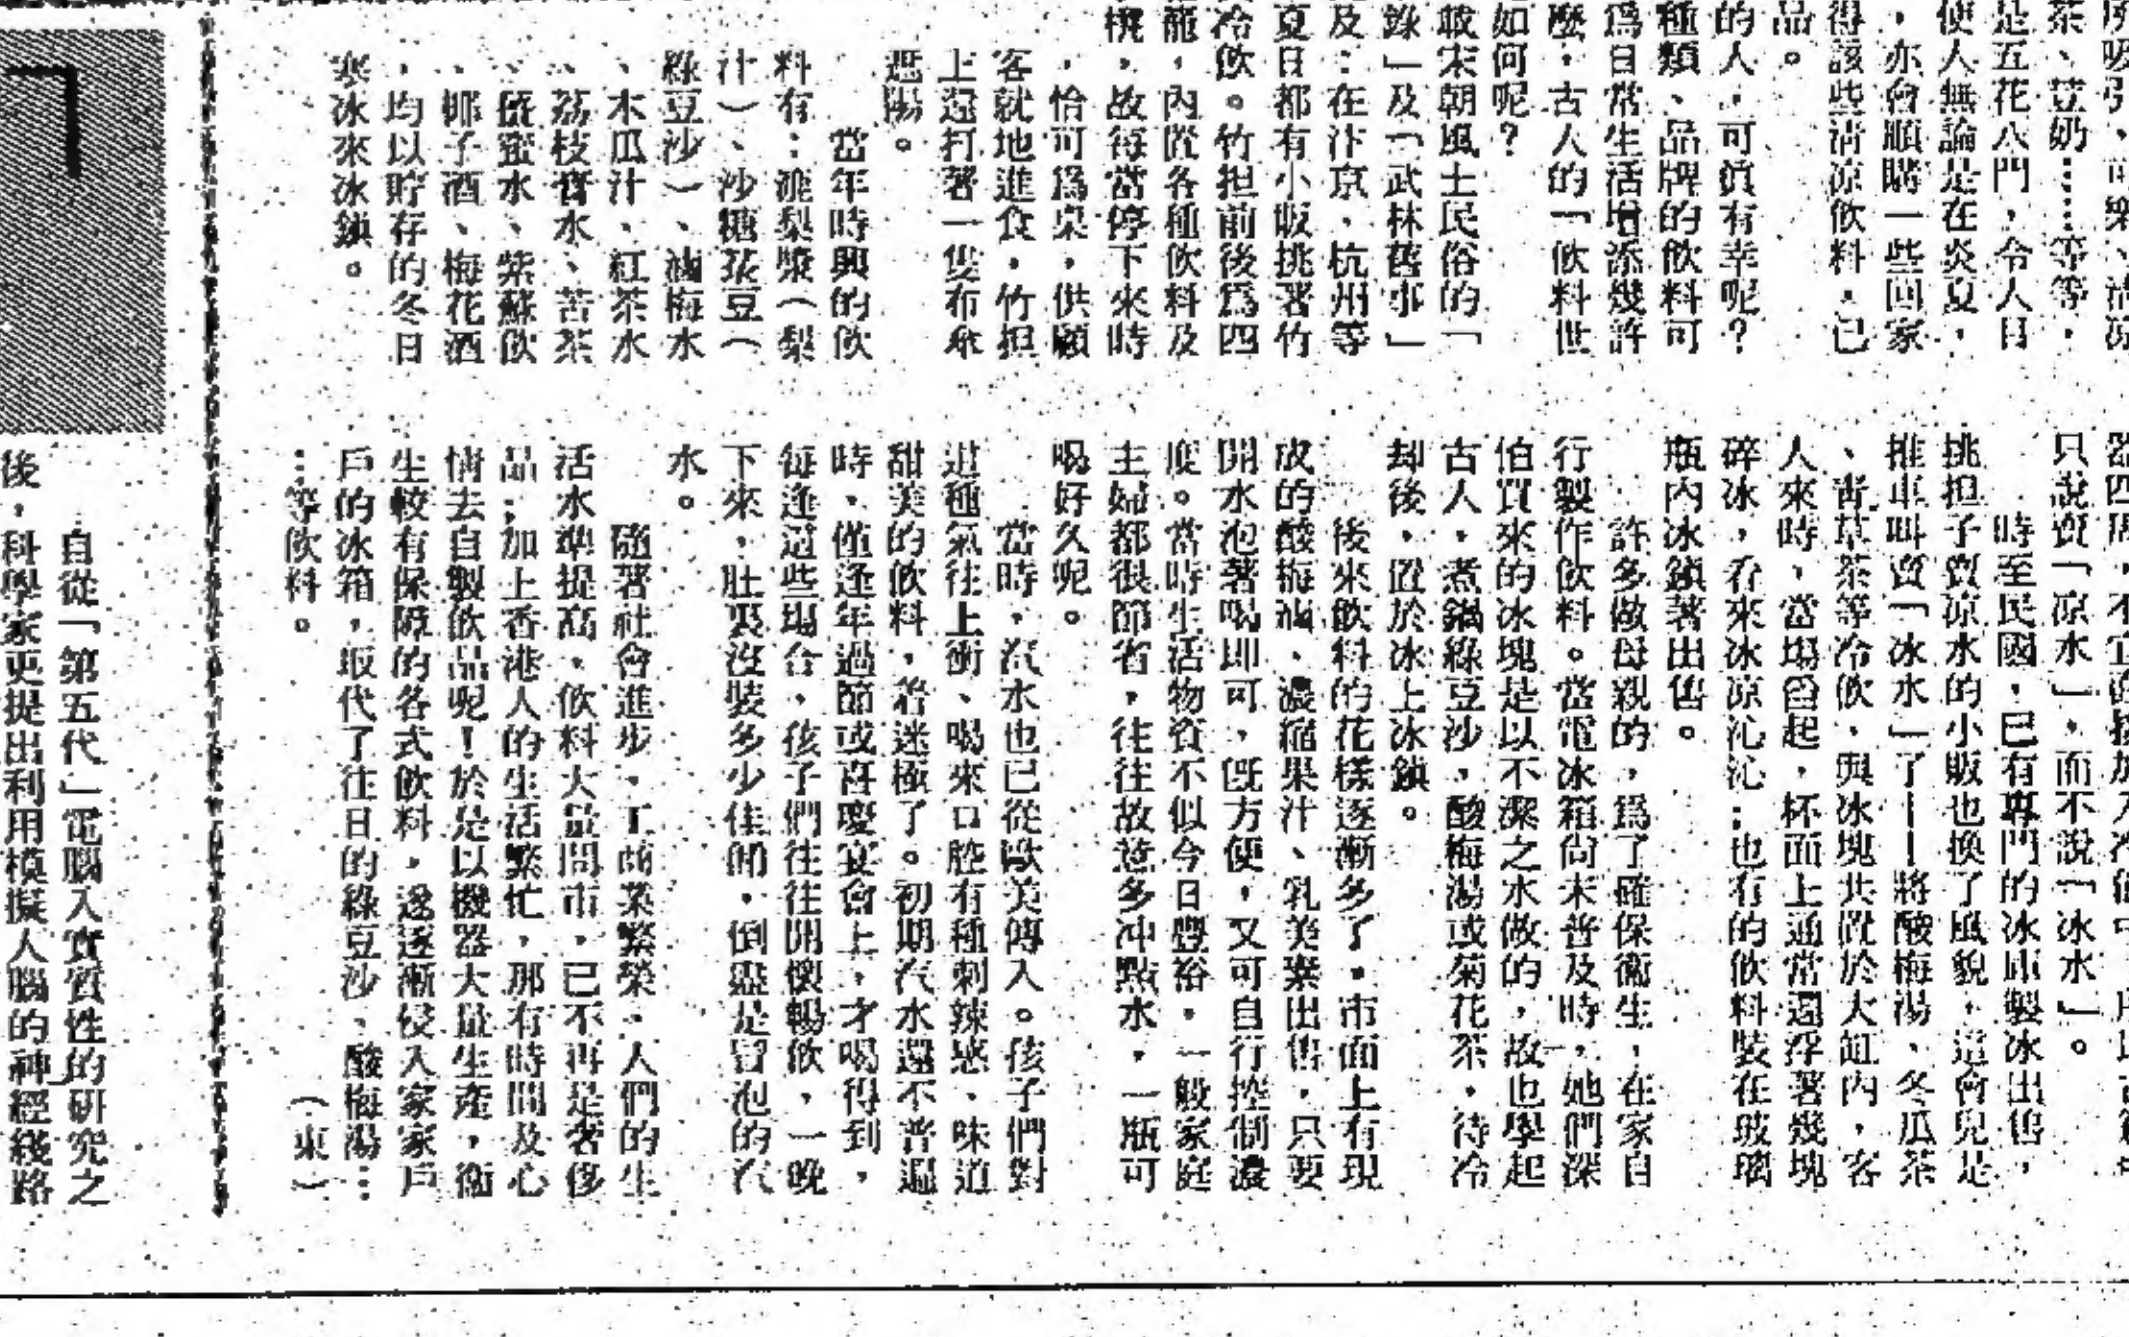 所吸引，可樂、清涼
茶、荳奶……等等，
是五花八門，令人目
使人無論是在炎夏，
，亦會順購一些回家
得該些清涼飲料，已
品。
的人，可眞有幸呢？
種類、品牌的飲料可
爲日常生活增添幾許
麼，古人的「飲料世
如何呢？
載宋朝風土民俗的「
錄」及「武林舊事」
及：在汴京、杭州等
夏日都有小販挑著竹
冷飲。竹担前後爲四
籠，內置各種飲料及
，故每當停下來時
，恰可爲桌，供顧
客就地進食，竹担
上還打著一隻布傘
遮陽。
當年時興的飲
料有：漉梨漿（梨
汁）、沙糖菉豆（
綠豆沙）、滷梅水
、木瓜汁、紅茶水
、荔枝膏水、苦茶
、蜜水、紫蘇飲
、椰子酒、梅花酒
，均以貯存的冬日
寒冰來冰鎮。
只說賣「凉水」，而不說「冰水」。
時至民國，已有專門的冰庫製冰出售，
挑担子賣凉水的小販也換了風貌，這會兒是
推車叫賣「冰水」了——將酸梅湯、冬瓜茶
、靑草茶等冷飲，與冰塊共置於大缸內，客
人來時，當場舀起，杯面上通常還浮著幾塊
碎冰，看來冰凉沁沁；也有的飲料裝在玻璃
瓶內冰鎮著出售。
許多做母親的，爲了確保衞生，在家自
行製作飲料。當電冰箱尙未普及時，她們深
怕買來的冰塊是以不潔之水做的，故也學起
古人，煮鍋綠豆沙，酸梅湯或菊花茶，待冷
却後，置於冰上冰鎮。
後來飲料的花樣逐漸多了。市面上有現
成的酸梅滷、濃縮果汁、乳美棗出售，只要
開水泡著喝即可，旣方便，又可自行控制濃
度。當時生活物資不似今日豐裕，一般家庭
主婦都很節省，往往故意多冲點水，一瓶可
喝好久呢。
當時，汽水也已從歐美傳入。孩子們對
這種氣往上衝、喝來口腔有種刺辣感、味道
甜美的飲料，着迷極了。初期汽水還不普遍
時，僅逢年過節或喜慶宴會上，才喝得到，
每逢這些場合，孩子們往往開懷暢飲，一晚
下來，肚裏沒裝多少佳餚，倒盡是冒泡的汽
水。
隨著社會進步，工商業繁榮，人們的生
活水準提高，飲料大量問市，已不再是奢侈
品；加上香港人的生活繁忙，那有時間及心
情去自製飲品呢！於是以機器大量生產，衞
生較有保障的各式飲料，遂逐漸侵入家家戶
戶的冰箱，取代了往日的綠豆沙、酸梅湯…
…等飲料。　　　　（東）
自從「第五代」電腦入實質性的研究之
後，科學家更提出利用模擬人腦的神經綫路